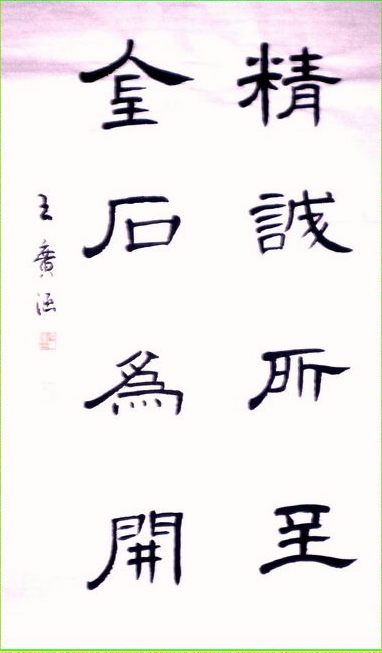 精誠所至
金石為開
王廣